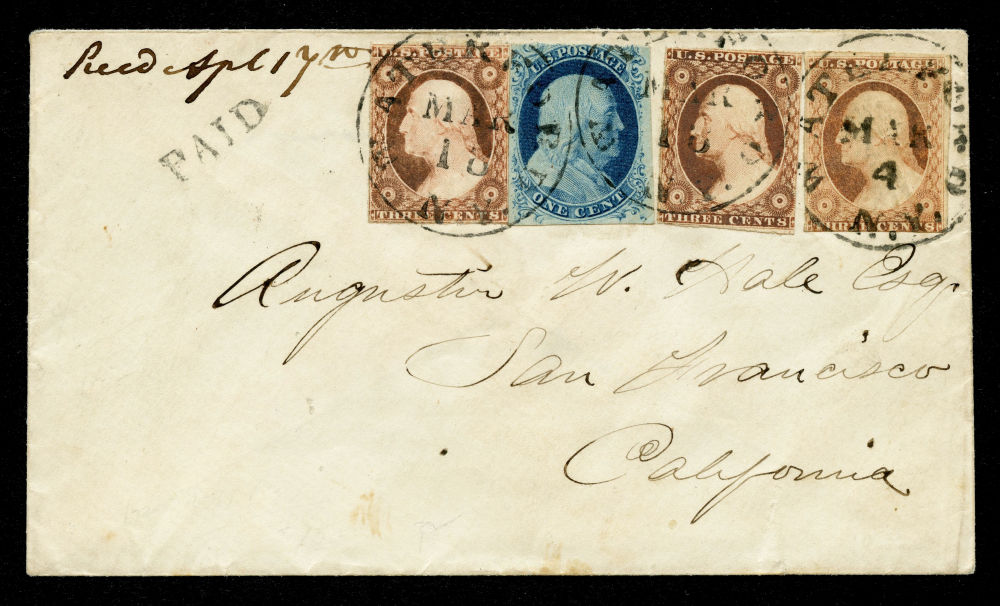 Recd Apl 17
PAID
U.S. POSTAGE
THREE CENTS
U.S. POSTAGE
ONE CENT
U.S. POSTAGE
THREE CENTS
U.S. POSTAGE
THREE CENTS
MAR
18
N.Y.
MAR
18
N.Y.
MAR
4
N.Y.
Augustus W. Hale Esq.
San Francisco
California